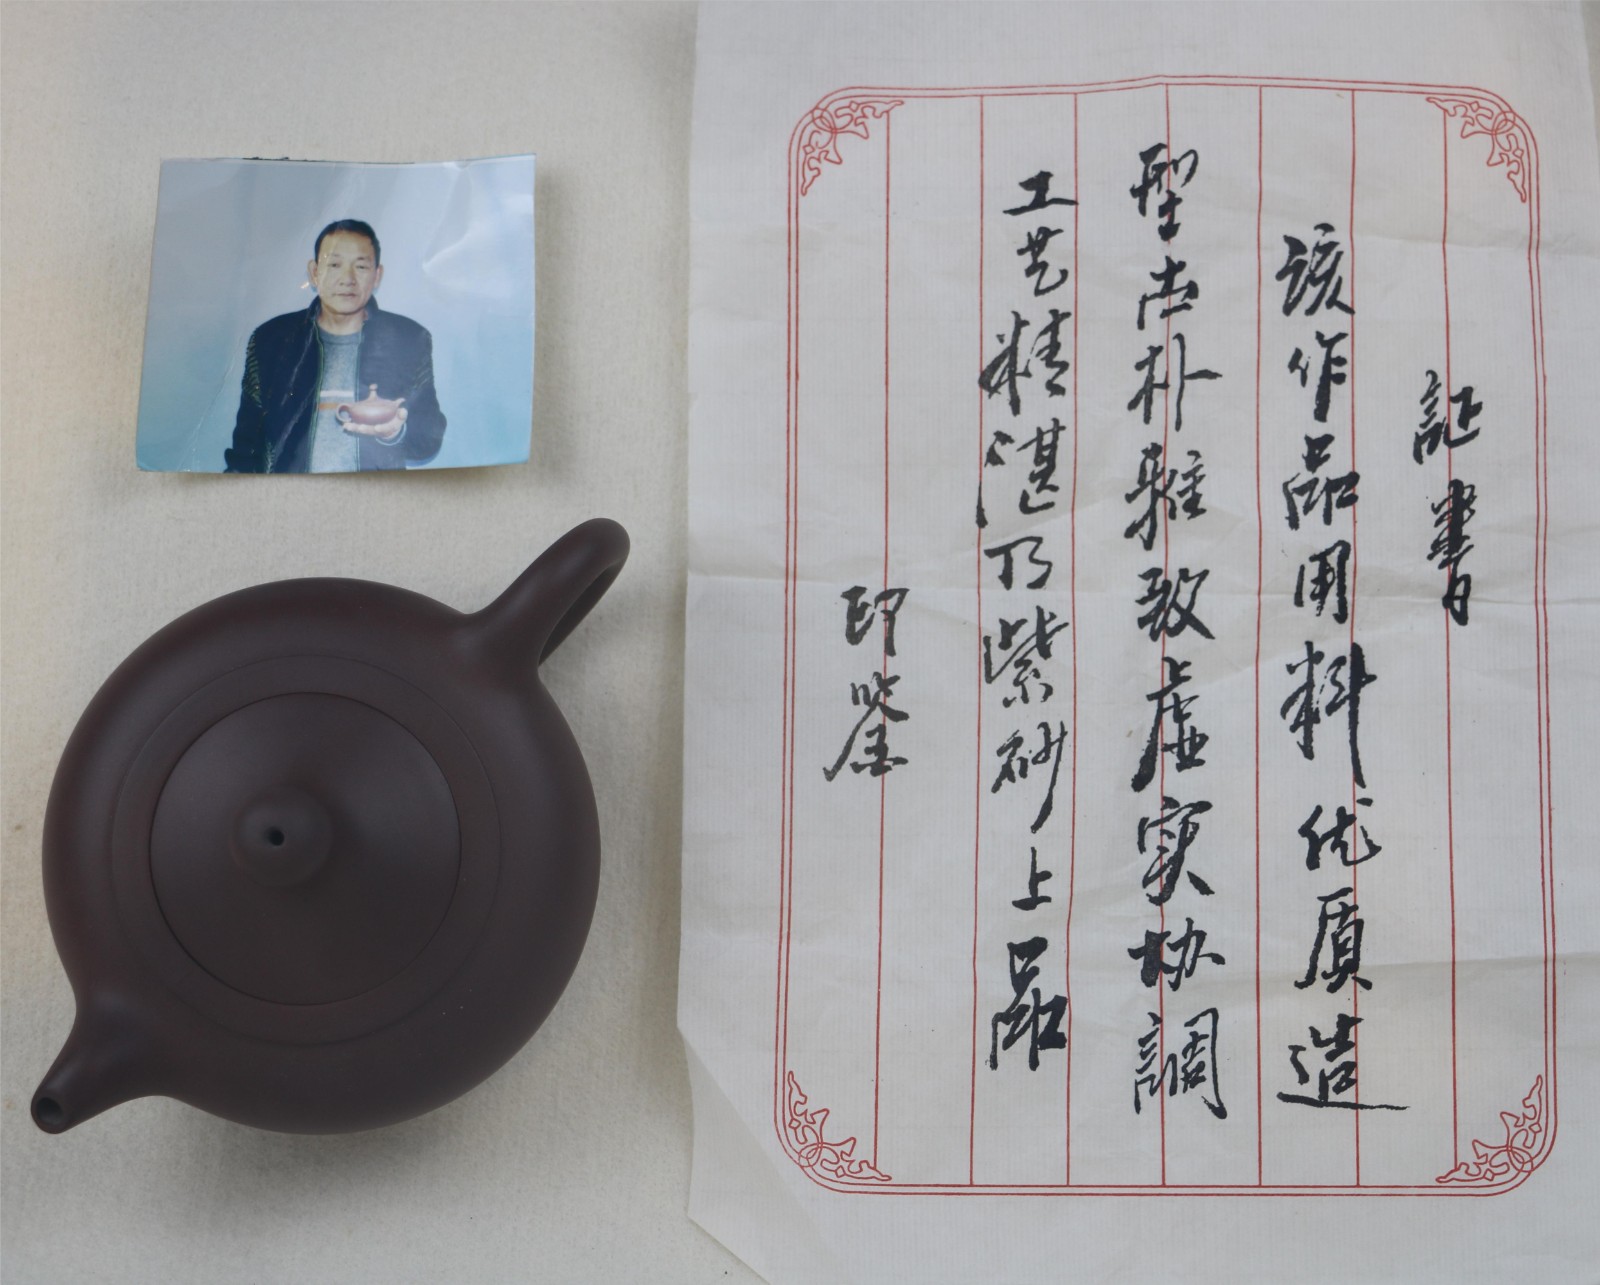 証書
该作品用料优质造
型古朴雅致虚实协調
工艺精湛乃紫砂上品
印鉴